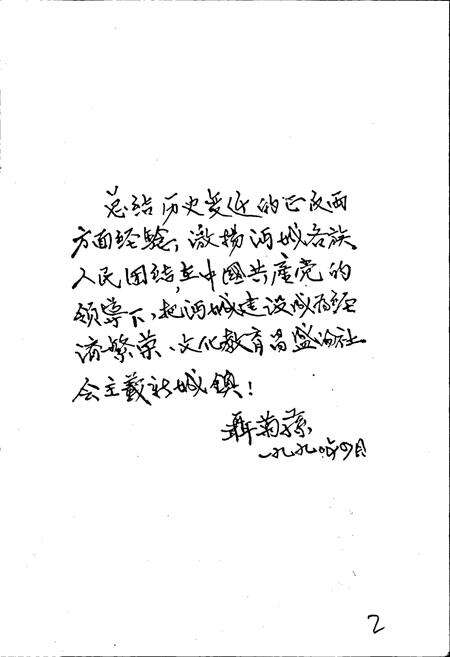 总结历史变迁的正反两
方面经验，激扬河城各族
人民团结在中國共産党的
领导下，把河城建设成为经
济繁荣、文化教育昌盛的社
会主義新城鎮！
聶菊蓀
一九九〇年四月
2